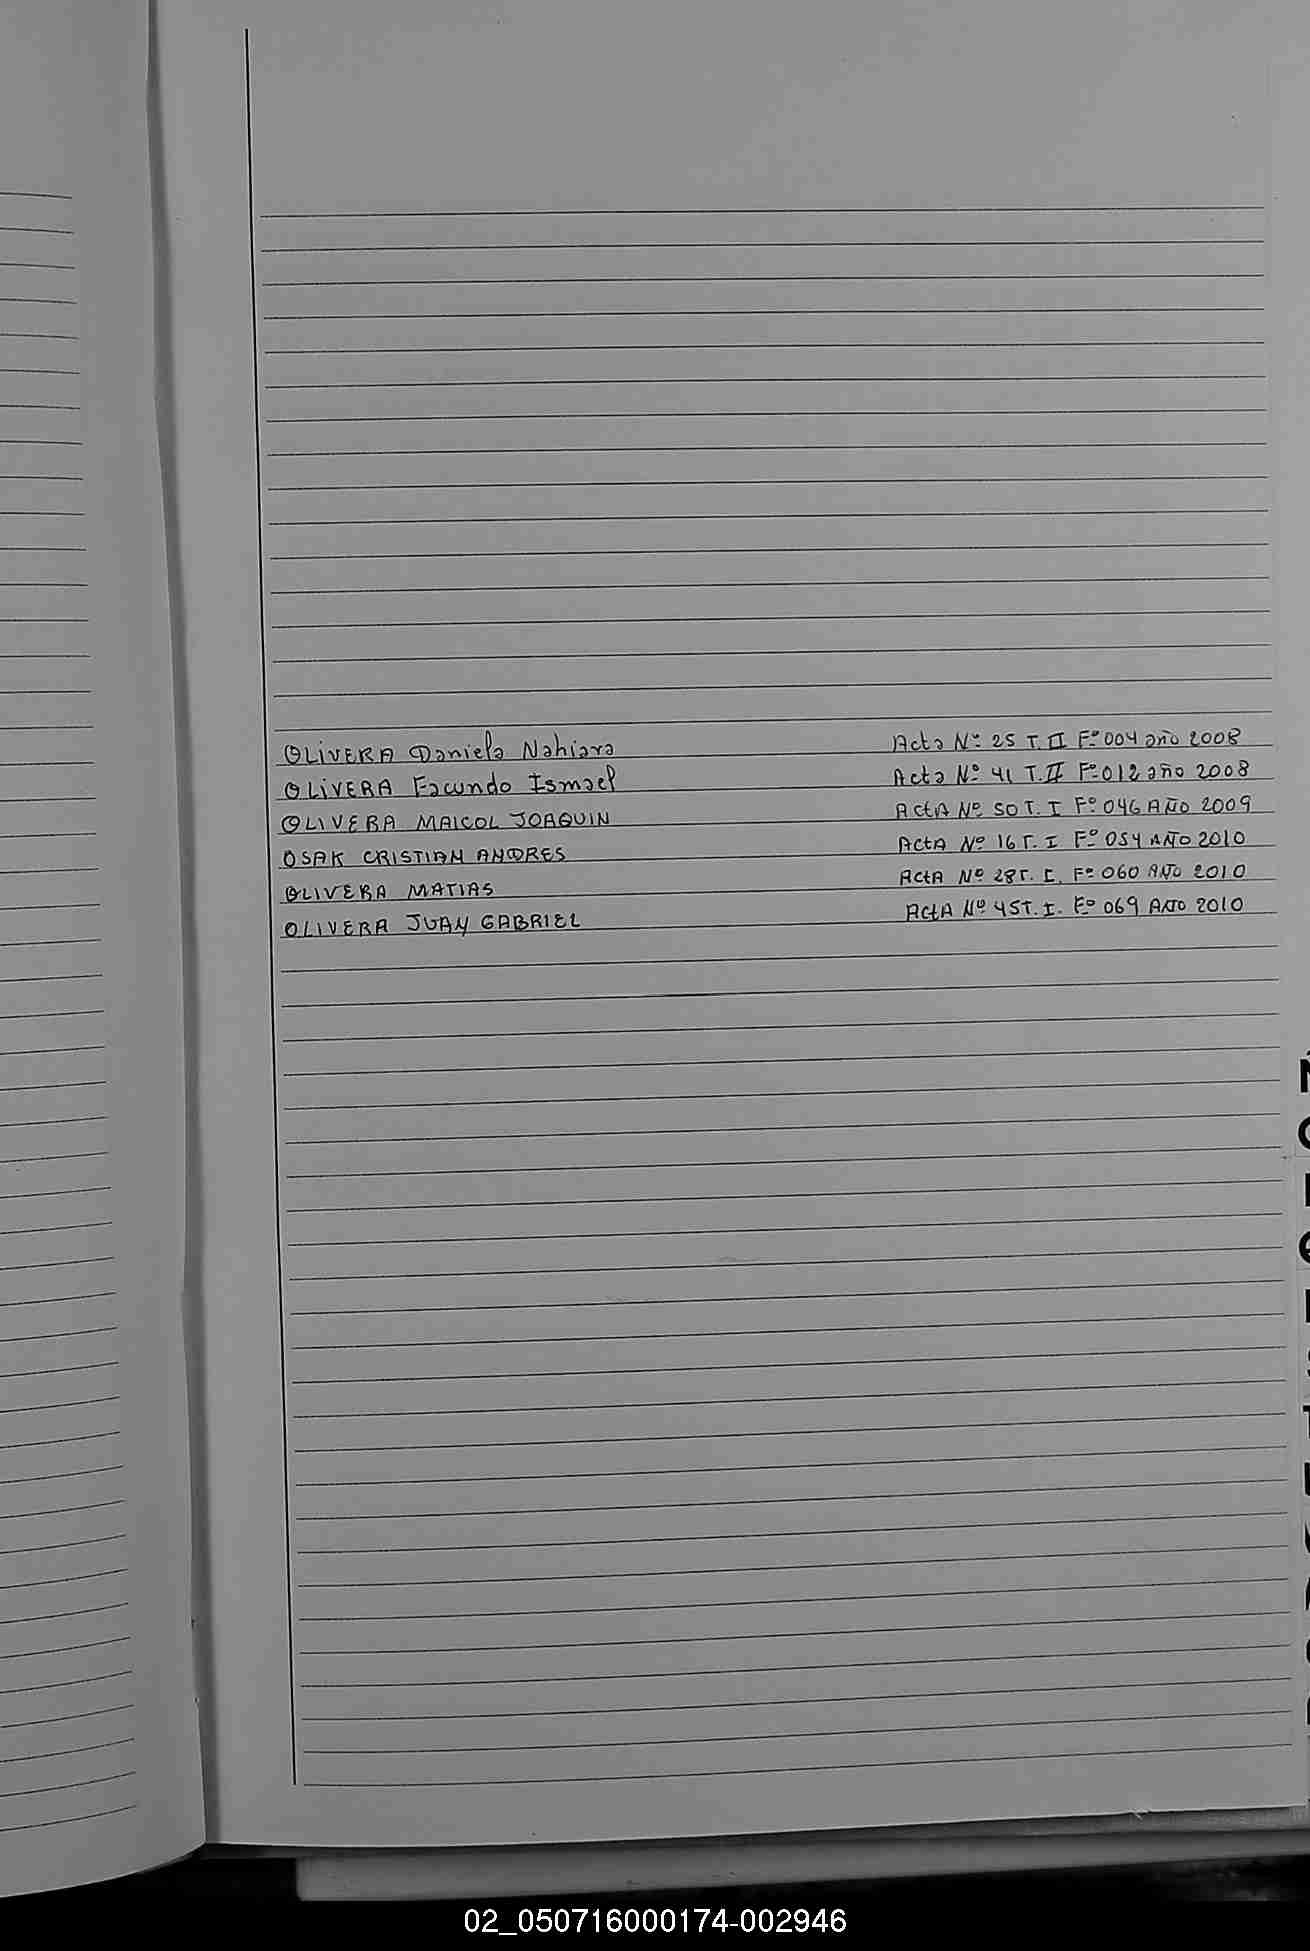 OLIVERA Daniela Nahiara Acta Nº 25 T. II Fº 004 año 2008
OLIVERA Facundo Ismael Acta Nº 41 T. II Fº 012 año 2008
OLIVERA MAICOL JOAQUIN ActA Nº 50 T. I Fº 046 AÑO 2009
OSAK CRISTIAN ANDRES ActA Nº 16 T. I Fº 054 AÑO 2010
OLIVERA MATIAS ActA Nº 28 T. I. Fº 060 AÑO 2010
OLIVERA JUAN GABRIEL ActA Nº 45 T. I. Fº 069 AÑO 2010
02_050716000174-002946